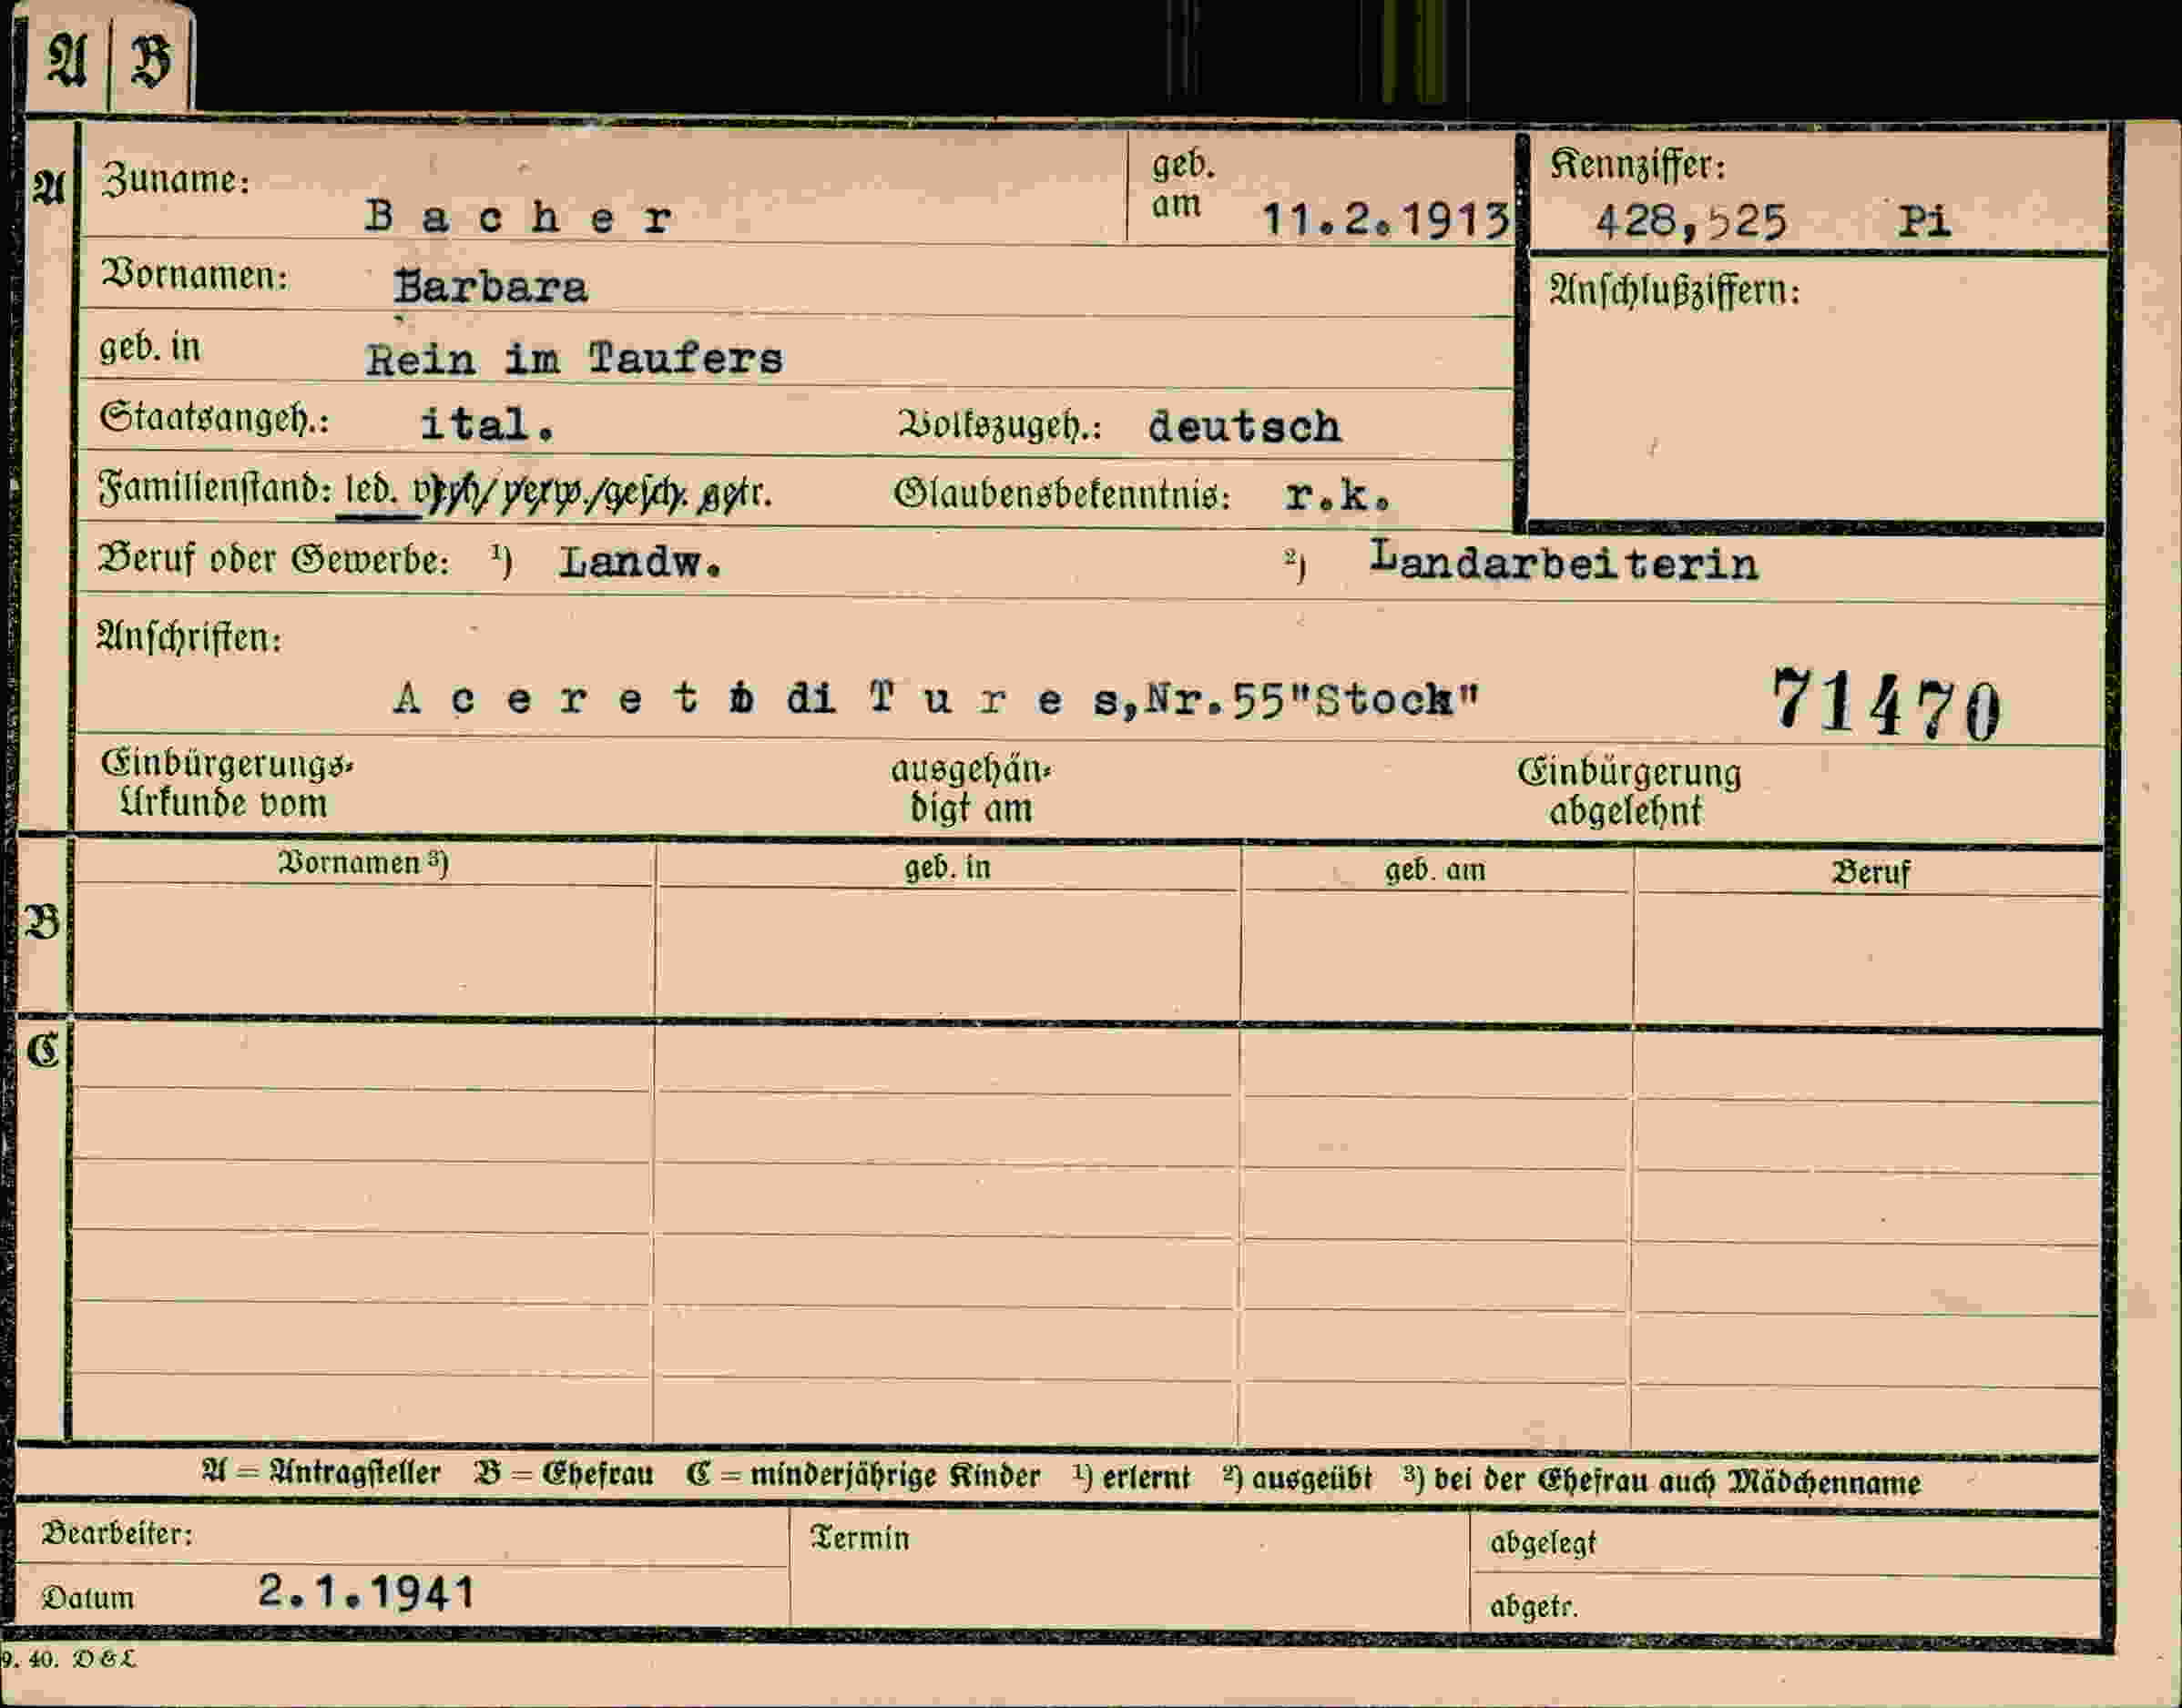 A B
A Zuname: B a c h e r geb. am 11.2.1913 Kennziffer: 428,525 Pi
Vornamen: Barbara Anschlußziffern:
geb. in Rein im Taufers
Staatsangeh.: ital. Volkszugeh.: deutsch
Familienstand: led. verh/verw./gesch. getr. Glaubensbekenntnis: r.k.
Beruf oder Gewerbe: ¹) Landw. ²) Landarbeiterin
Anschriften:
A c e r e t o di T u r e s,Nr.55"Stock" 71470
Einbürgerungs- ausgehän- Einbürgerung
Urkunde vom digt am abgelehnt
Vornamen ³) geb. in geb. am Beruf
B
C
A = Antragsteller B = Ehefrau C = minderjährige Kinder ¹) erlernt ²) ausgeübt ³) bei der Ehefrau auch Mädchenname
Bearbeiter: Termin abgelegt
Datum 2.1.1941 abgetr.
9. 40. D & L